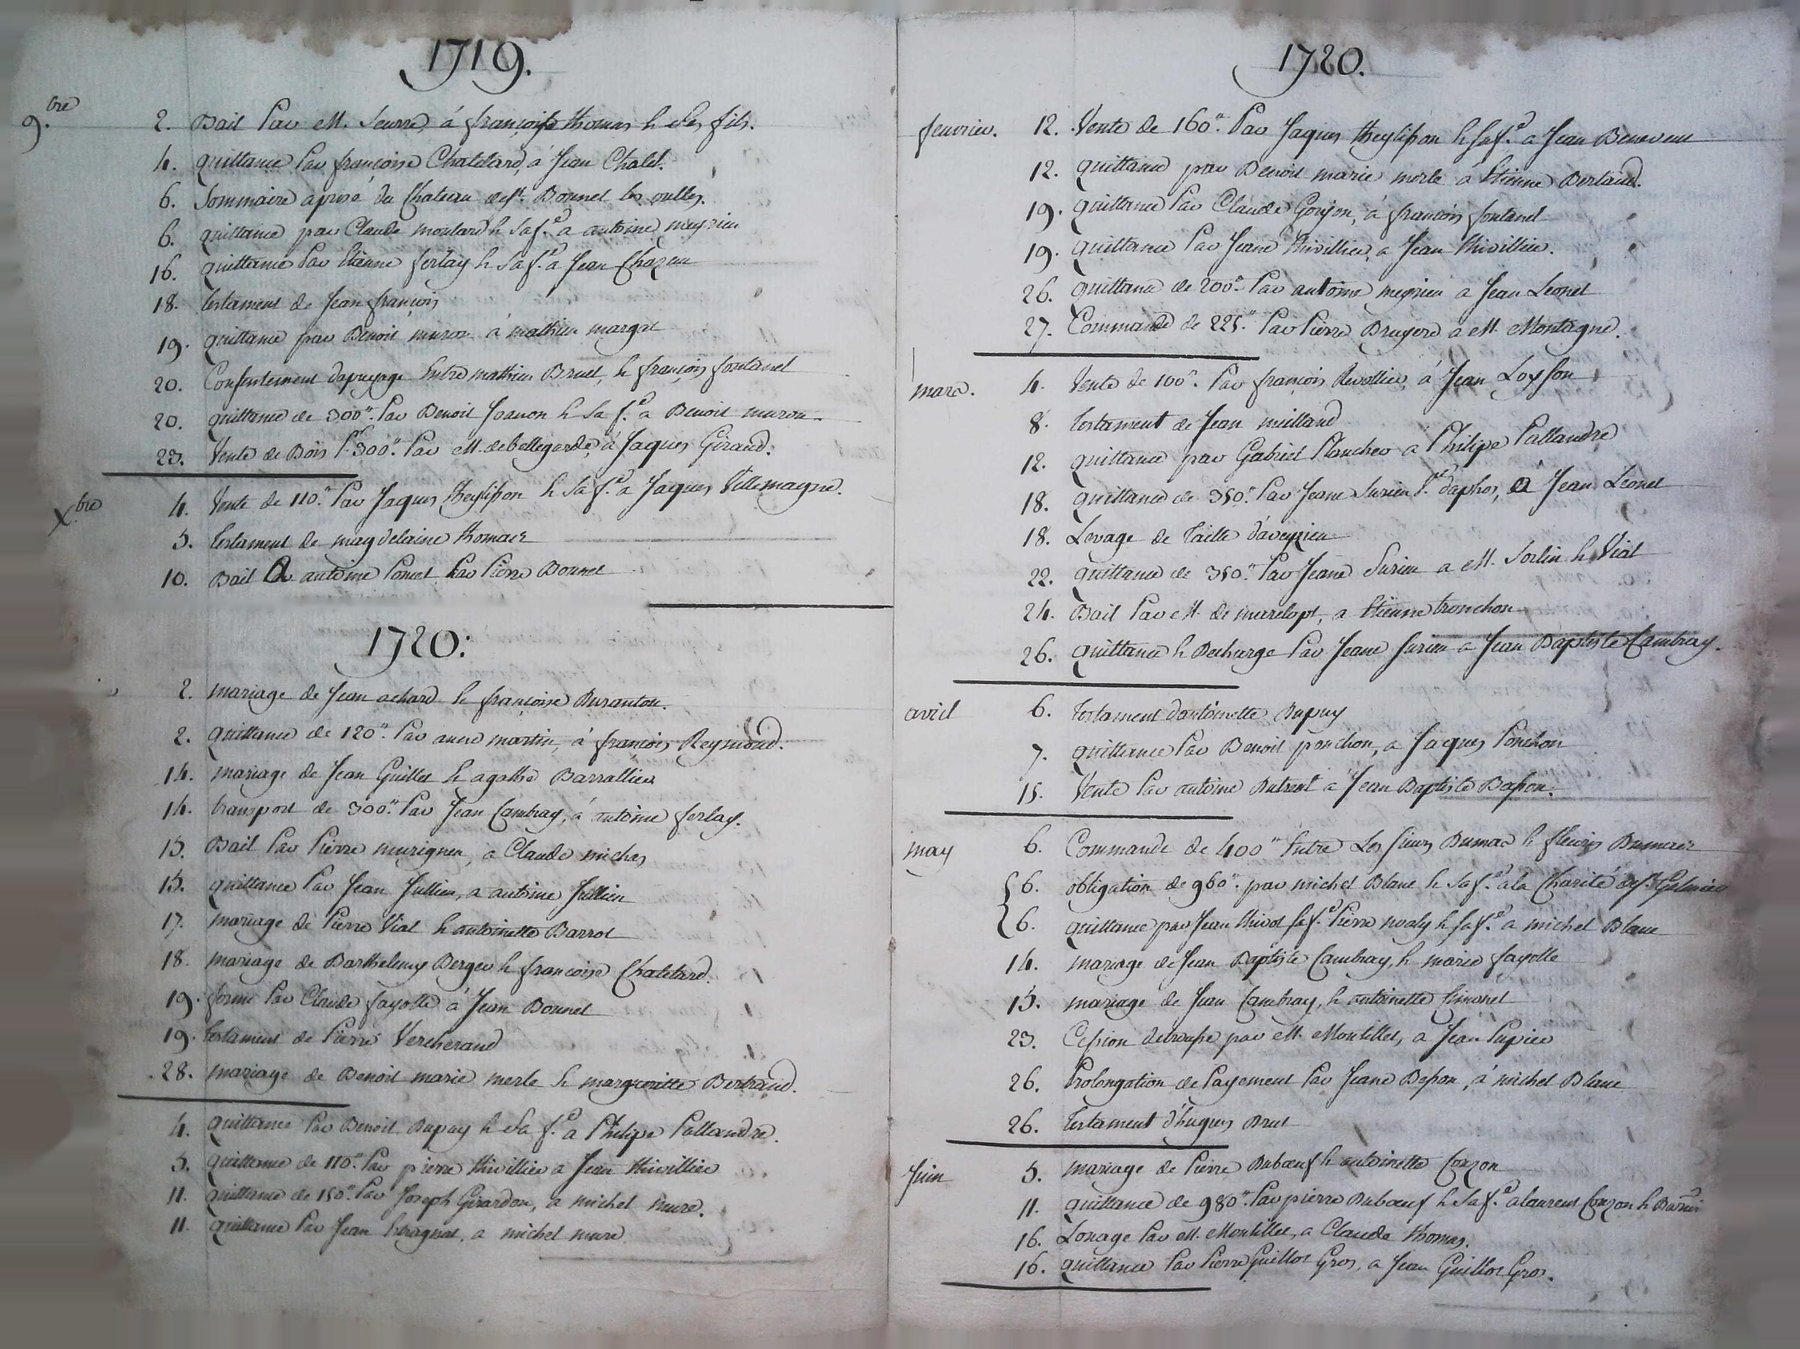 1719.
9.bre 2. Bail Par M. Seurre, á françoise thomas & Ses fils.
4. quittance Par françoise Chatelard, á Jean Chalet.
6. Sommaire aprisé du Chateau de St. Bonnet les oulles.
6. quittance par Claude moulard & Sa f.e a antoine meyrieu
16. quittance Par Etienne ferlay & Sa f.e a Jean Chazeu
18. testament de Jean françois
19. quittance par Benoit muron á mathieu margot
20. Consentement dapuyage Entre mathieu Bruel, & françois fontanel
20. quittance de 300.tt Par Benoit Jranon & Sa f.e a Benoit muron.
23. Vente de Bois P.r 300.tt Par M. de bellegarde, á Jaques Giraud.
X.bre 4. Vente de 110.tt Par Jaques theylisson & Sa f.e a Jaques Villemagne.
5. testament de magdelaine thomas
10. Bail A antoine Poncet Par Pierre Bonnet
1720:
2. mariage de Jean achard & françoise Duranton.
2. quittance de 120.tt Par anne martin, á francois Reymond.
14. mariage de Jean Guillet & agathe Barrallier
14. transport de 300.tt Par Jean Cambray, á antoine ferlay.
15. Bail Par Pierre murigneu, a Claude michas
15. quittance Par Jean Jullien, a antoine Jullien
17. mariage de Pierre Vial & antoinette Barrot
18. mariage de Barthelemy Berger & francoise Chatelard.
19. ferme Par Claude fayolle á Jean Bonnet
19. testament de Pierre Vercherand
28. mariage de Benoit marie merle & margueritte Bertrand.
4. quittance Par Benoit Dupuy & Sa f.e a Philipe Pallandre.
5. quittance de 110.tt Par pierre thivillier a Jean thivillier
11. quittance de 150.tt Par Joseph Girardon, a michel mure.
11. quittance Par Jean heragnat, a michel mure
1720.
fevrier. 12. Vente de 160.tt Par Jaques theylisson & Sa f.e a Jean Benevent
12. quittance par Benoit marie merle a Etienne Berland.
19. quittance Par Claude Goujon, á francois fontanel
19. quittance Par Jeane thivillier, a Jean thivillier.
26. quittance de 200.tt Par antoine meyrieu a Jean Leonet
27. Commande de 225.tt Par Pierre Bruyere a M. Montagne.
mars. 4. Vente de 100.tt Par françois Revollier, á Jean Loyson
8. testament de Jean milland
12. quittance par Gabriel Plancher a Philipe Pallandre
18. quittance de 350.tt Par Jeane Surieu, A Jean Leonet
18. Levage de Taille d'aveyzieu
22. quittance de 350.tt Par Jeane Surieu a M. Sorlin & Vial
24. Bail Par M. de marclopt, a Etienne tronchon
26. quittance & Decharge Par Jeane Surieu a Jean Baptiste Cambray.
avril 6. testament d'antoinette Dupuy
7. quittance Par Benoit ponchon, a Jaques Ponchon
15. Vente Par antoine Dutreat a Jean Baptiste Basson.
may 6. Commande de 400.tt Entre Les Sieurs Dumas & fleury Dumas
6. obligation de 960.tt par michel Blanc & Sa f.e a la Charité de St. Galmier
6. quittance par Jean thivot Sa f.e Pierre & Sa f.e a michel Blanc
14. mariage de Jean Baptiste Cambray, & marie fayolle
15. mariage de Jean Cambray, & antoinette Simonet
23. Cession par M. Montillet, a Jean Pupier
26. Prolongation de Payement Par Jeane Besson, á michel Blanc
26. testament d'hugues Brut
Juin 5. mariage de Pierre Dubœuf & antoinette Conzon
11. quittance de 980.tt Par pierre Dubœuf & Sa f.e a laurent Conzon &
16. Louage Par M. Montillet, a Claude thomas.
16. quittance Par Pierre Guillot Gros, a Jean Guillot Gros.